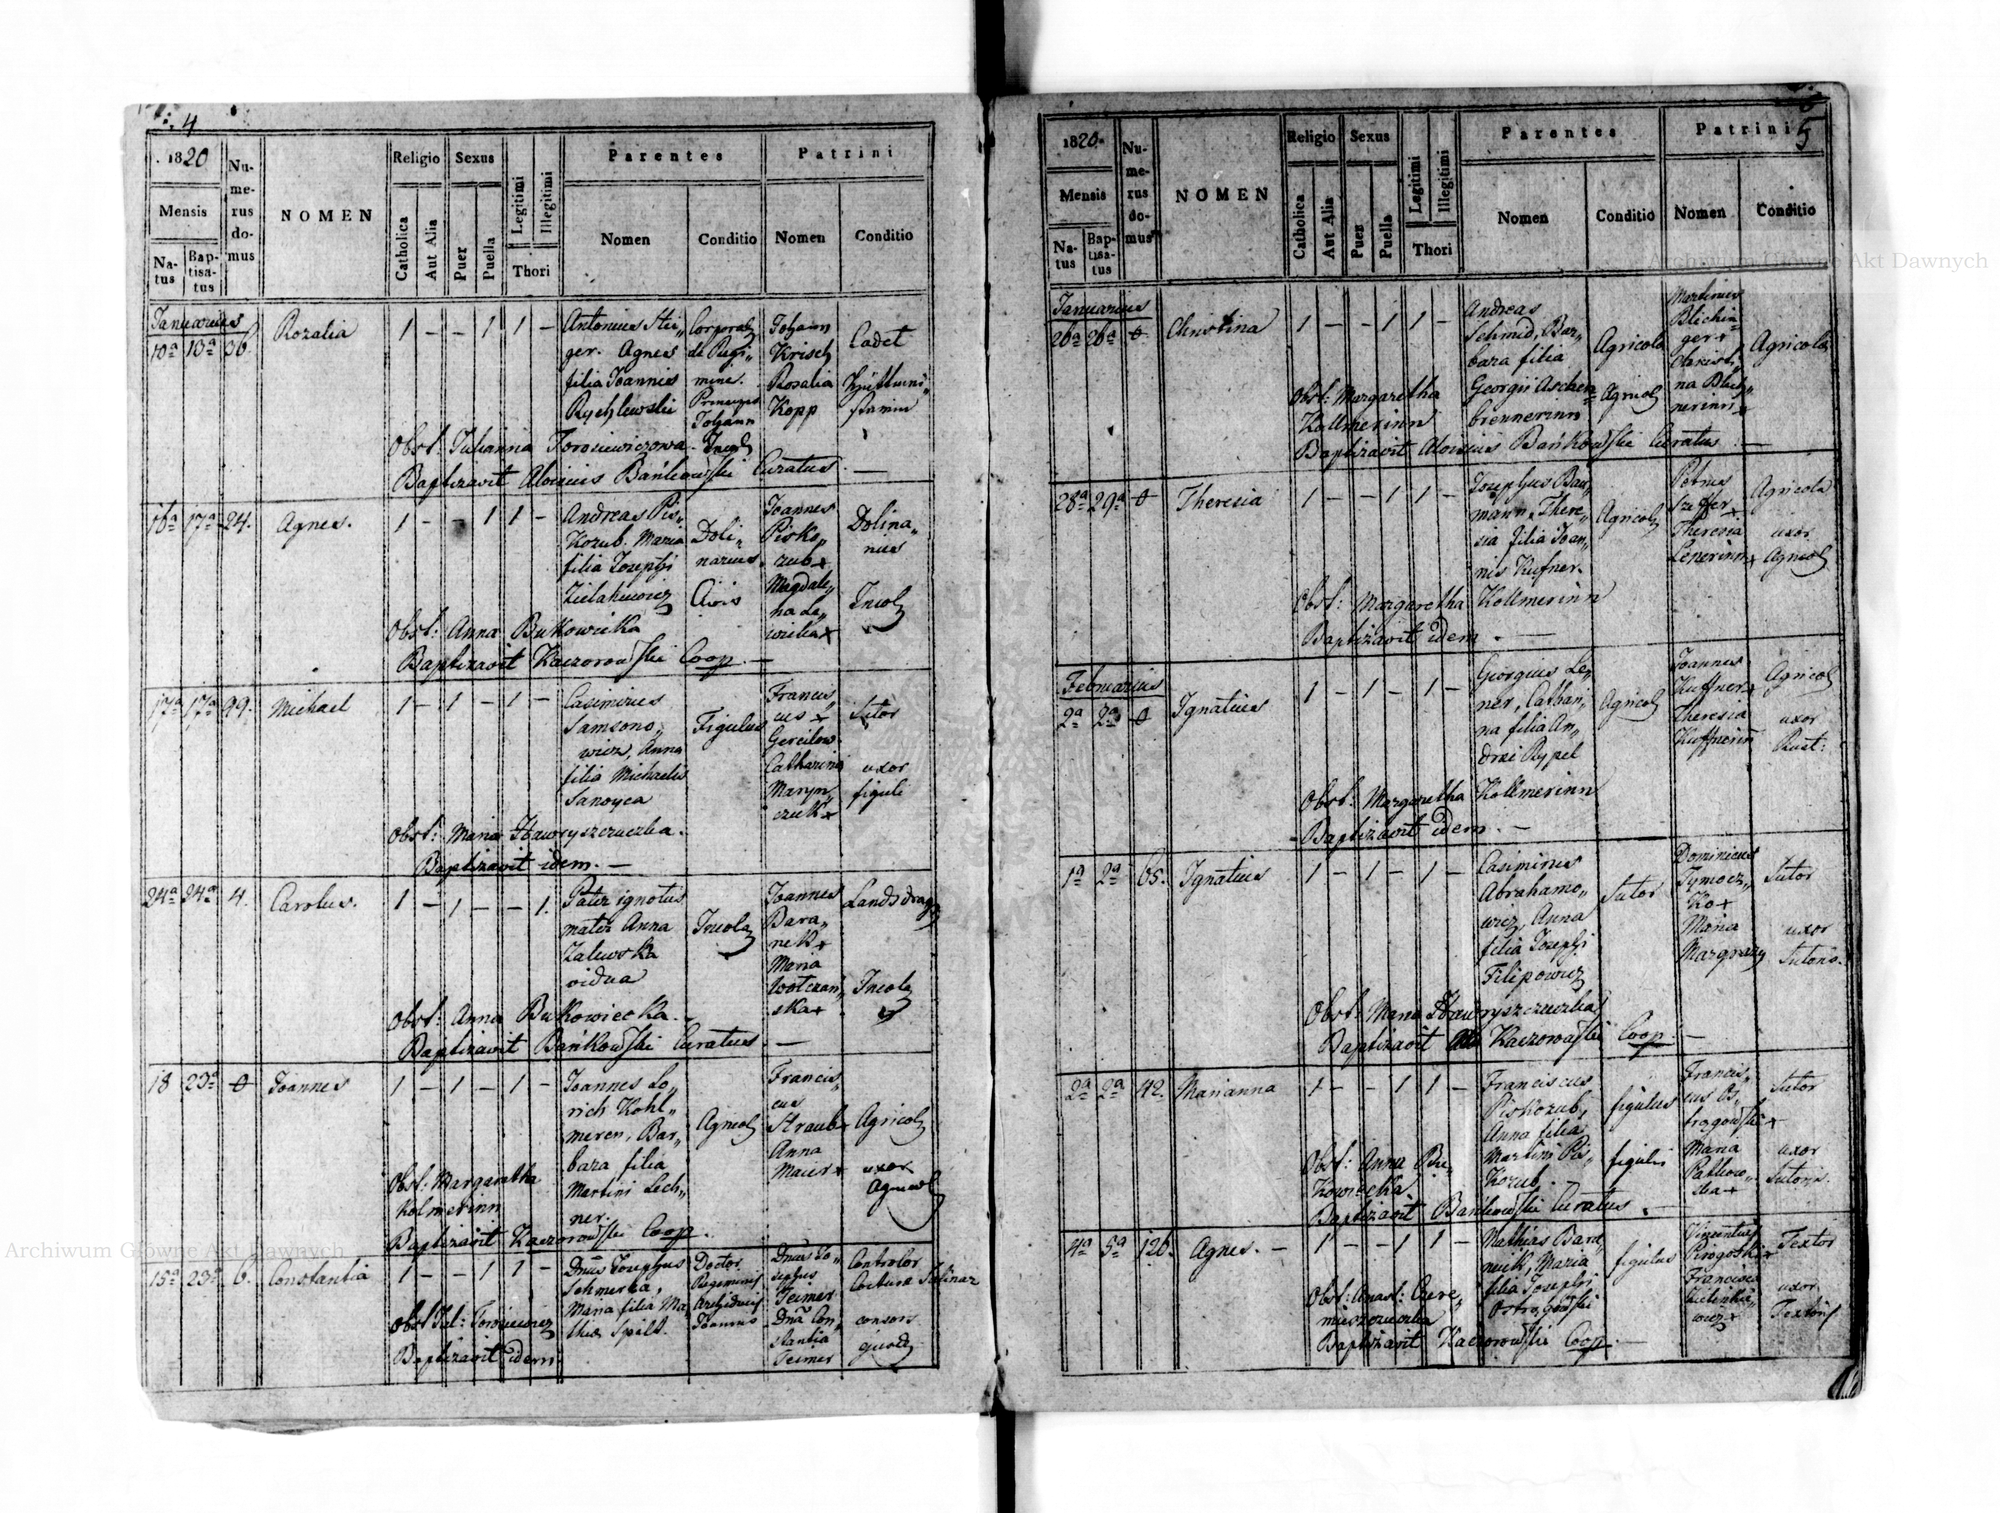 4
1820
Nu-
me-
rus
do-
mus
NOMEN
Religio
Sexus
Legitimi
Illegitimi
Parentes
Patrini
Mensis
Catholica
Aut Alia
Puer
Puella
Thori
Nomen
Conditio
Nomen
Conditio
Na-
tus
Bap-
tisa-
tus
Januarius
10a 13a 36. Rozalia 1 – – 1 1 –
Antonius Stei„
ger. Agnes
filia Joannis
Rychlewski
Corporal
de Regi„
mine
Principis
Johann
Johann
Krisch
Rosalia
Kopp
Cadet
Obst: Julianna Torosiewiczowa
Baptizavit Aloisius Bańkowski Curatus. —
16a 17a 24. Agnes. 1 – 1 1 –
Andreas Pis„
Kozub. Maria
filia Josephi
Zielakiewicz
Doli„
narius.
Civis
Joannes
Pisko„
zub +
Magdale„
na Le„
wicka +
Dolina„
rius
Incola
Obst: Anna Bukowiecka
Baptizavit Kaczorowski Coop. —
17a 17a 99. Michael 1 – 1 – 1 –
Casimirus
Samsono„
wicz, Anna
filia Michaelis
Sanoyca
Figulus
Francis„
cus +
Gercilow
Catharina
Maryn„
czuk +
Sutor
uxor
figuli
Obst: Maria Hawryszczuczka.
Baptizavit idem. —
24a 24a 4. Carolus. 1 – 1 – – 1.
Pater ignotus
mater Anna
Zalewska
vidua
Incola
Joannes
Bara„
nek +
Maria
Wolczan„
ska +
Landsdrag
Incola
Obst: Anna Bukowiecka. –
Baptizavit Bańkowski Curatus. —
18 23a 0 Joannes 1 – 1 – 1 –
Joannes Lo„
rich Kohl„
meren, Bar„
bara filia
Martini Lech„
ner.
Agricola
Francis„
cus
Straub +
Anna
Maier +
Agricola
uxor
Agricola
Obst: Margaretha
Kolmerinn
Baptizavit Kaczorowski Coop.
15a 23a 6. Constantia 1 – – 1 1 –
Dnus Josephus
Schmerka,
Maria filia Ma„
thiæ Spilt.
Doctor
Regiminis
Archiducis
Joannis
Dnus Jo„
sephus
Teimer
Dna Con„
stantia
Teimer
Controlor
Cocturæ Salinar
consors
ejusdem
Obst Jul: Torosiewicz
Baptizavit idem
5
1820
Nu-
me-
rus
do-
mus
NOMEN
Religio
Sexus
Legitimi
Illegitimi
Parentes
Patrini
Mensis
Catholica
Aut Alia
Puer
Puella
Thori
Nomen
Conditio
Nomen
Conditio
Na-
tus
Bap-
tisa-
tus
Archiwum Główne Akt Dawnych
Januarius
26a 26a 0 Christina 1 – – 1 1 –
Andreas
Schmid, Bar„
bara filia
Georgii Aschen„
brennerinn
Agricola
Agricola
Martinus
Blichin„
ger +
Christi„
na Blich„
nerinn +
Agricola
Obst: Margaretha
Kollmerinn
Baptizavit Aloisius Bańkowski Curatus. —
28a 29a 0 Theresia 1 – – 1 1 –
Josephus Bau„
mann, There„
sia filia Joan„
nis Kufner.
Agricola
Petrus
Szeffer +
Theresia
Lenerinn +
Agricola
uxor
Agricola
Obst: Margaretha Kollmerinn
Baptizavit idem. —
Februarius
2a 2a 0 Ignatius 1 – 1 – 1 –
Giorgius Le„
ner, Cathari„
na filia An„
drei Rypel
Agricola
Joannes
Kuffner +
Theresia
Kuffnerin
Agricola
uxor
Rust:
Obst: Margaretha Kollmerinn
Baptizavit idem. —
1a 2a 65. Ignatius 1 – 1 – 1 –
Casimirus
Abrahamo„
wicz, Anna
filia Josephi
Filipowicz
Sutor
Dominicus
Tymocz„
ko +
Maria
Sutor
uxor
Sutoris.
Obst: Maria Hawryszczuczka
Baptizavit Kaczorowski Coop —
2a 2a 42. Marianna 1 – – 1 1 –
Franciscus
Piskozub,
Anna filia
Martini Pis„
Kozub.
figulus
figulis
Francis„
cus Os„
trogowski +
Maria
Patkow„
ska +
Sutor
uxor
Sutoris.
Obst: Anna Bu„
kowiecka
Baptizavit Bańkowski Curatus. —
4a 5a 126. Agnes. – 1 – – 1 1 –
Mathias Bara„
niuk, Maria
filia Josephi
Ostrogowski
figulus
Vincentius
Pirogotski +
Francisca
Zielenkie„
wicz +
Textor
uxor
Textoris
Obst: Anast: Czere„
mieszczuczka
Baptizavit Kaczorowski Coop —
Archiwum Główne Akt Dawnych